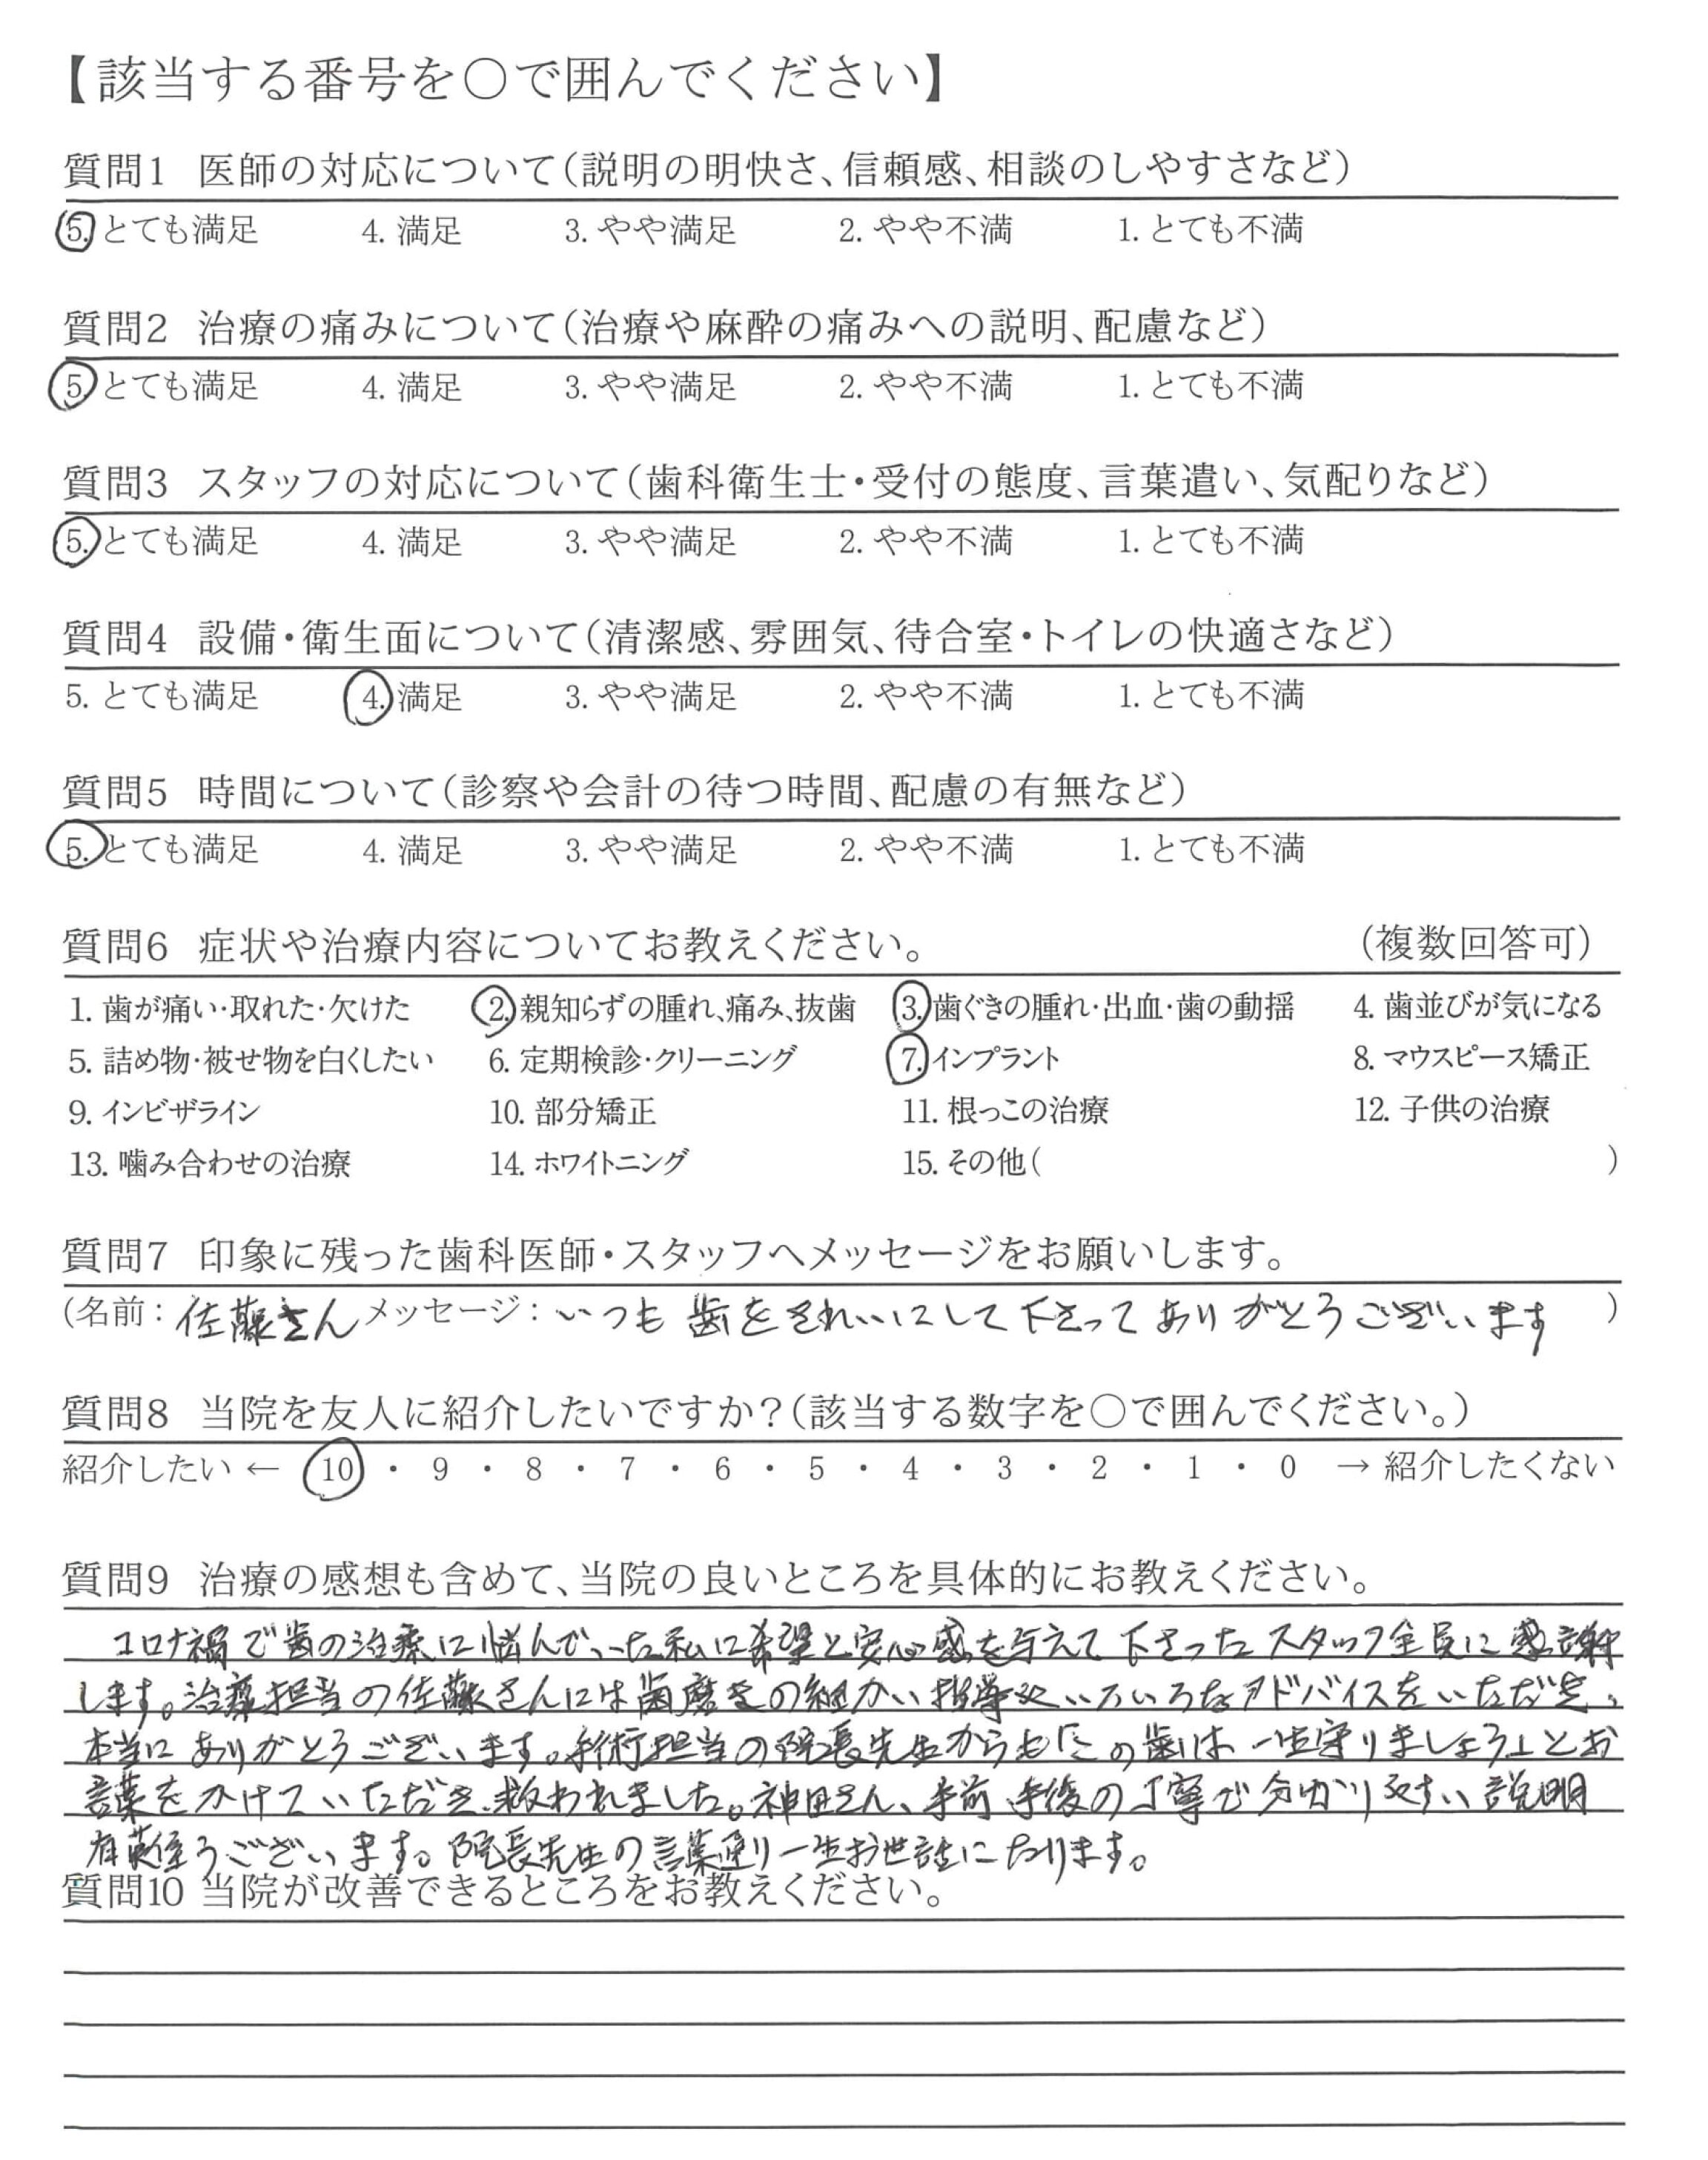 【該当する番号を〇で囲んでください】
質問1 医師の対応について(説明の明快さ、信頼感、相談のしやすさなど)
5. とても満足 4. 満足 3. やや満足 2. やや不満 1. とても不満
質問2 治療の痛みについて(治療や麻酔の痛みへの説明、配慮など)
5. とても満足 4. 満足 3. やや満足 2. やや不満 1. とても不満
質問3 スタッフの対応について(歯科衛生士・受付の態度、言葉遣い、気配りなど)
5. とても満足 4. 満足 3. やや満足 2. やや不満 1. とても不満
質問4 設備・衛生面について(清潔感、雰囲気、待合室・トイレの快適さなど)
5. とても満足 4. 満足 3. やや満足 2. やや不満 1. とても不満
質問5 時間について(診察や会計の待つ時間、配慮の有無など)
5. とても満足 4. 満足 3. やや満足 2. やや不満 1. とても不満
質問6 症状や治療内容についてお教えください。 (複数回答可)
1. 歯が痛い・取れた・欠けた 2. 親知らずの腫れ、痛み、抜歯 3. 歯ぐきの腫れ・出血・歯の動揺 4. 歯並びが気になる
5. 詰め物・被せ物を白くしたい 6. 定期検診・クリーニング 7. インプラント 8. マウスピース矯正
9. インビザライン 10. 部分矯正 11. 根っこの治療 12. 子供の治療
13. 噛み合わせの治療 14. ホワイトニング 15. その他( )
質問7 印象に残った歯科医師・スタッフへメッセージをお願いします。
(名前: 佐藤さん メッセージ: いつも歯をきれいにして下さってありがとうございます )
質問8 当院を友人に紹介したいですか?(該当する数字を〇で囲んでください。)
紹介したい ← 10 ・ 9 ・ 8 ・ 7 ・ 6 ・ 5 ・ 4 ・ 3 ・ 2 ・ 1 ・ 0 → 紹介したくない
質問9 治療の感想も含めて、当院の良いところを具体的にお教えください。
コロナ禍で歯の治療に悩んでいた私に希望と安心感を与えて下さったスタッフ全員に感謝
します。治療担当の佐藤さんには歯磨きの細かい指導やいろいろなアドバイスをいただき、
本当にありがとうございます。手術担当の院長先生からも「この歯は一生守りましょう」とお
言葉をかけていただき、救われました。神田さん、手前手後の丁寧で分かりやすい説明
有難うございます。院長先生の言葉通り一生お世話になります。
質問10 当院が改善できるところをお教えください。